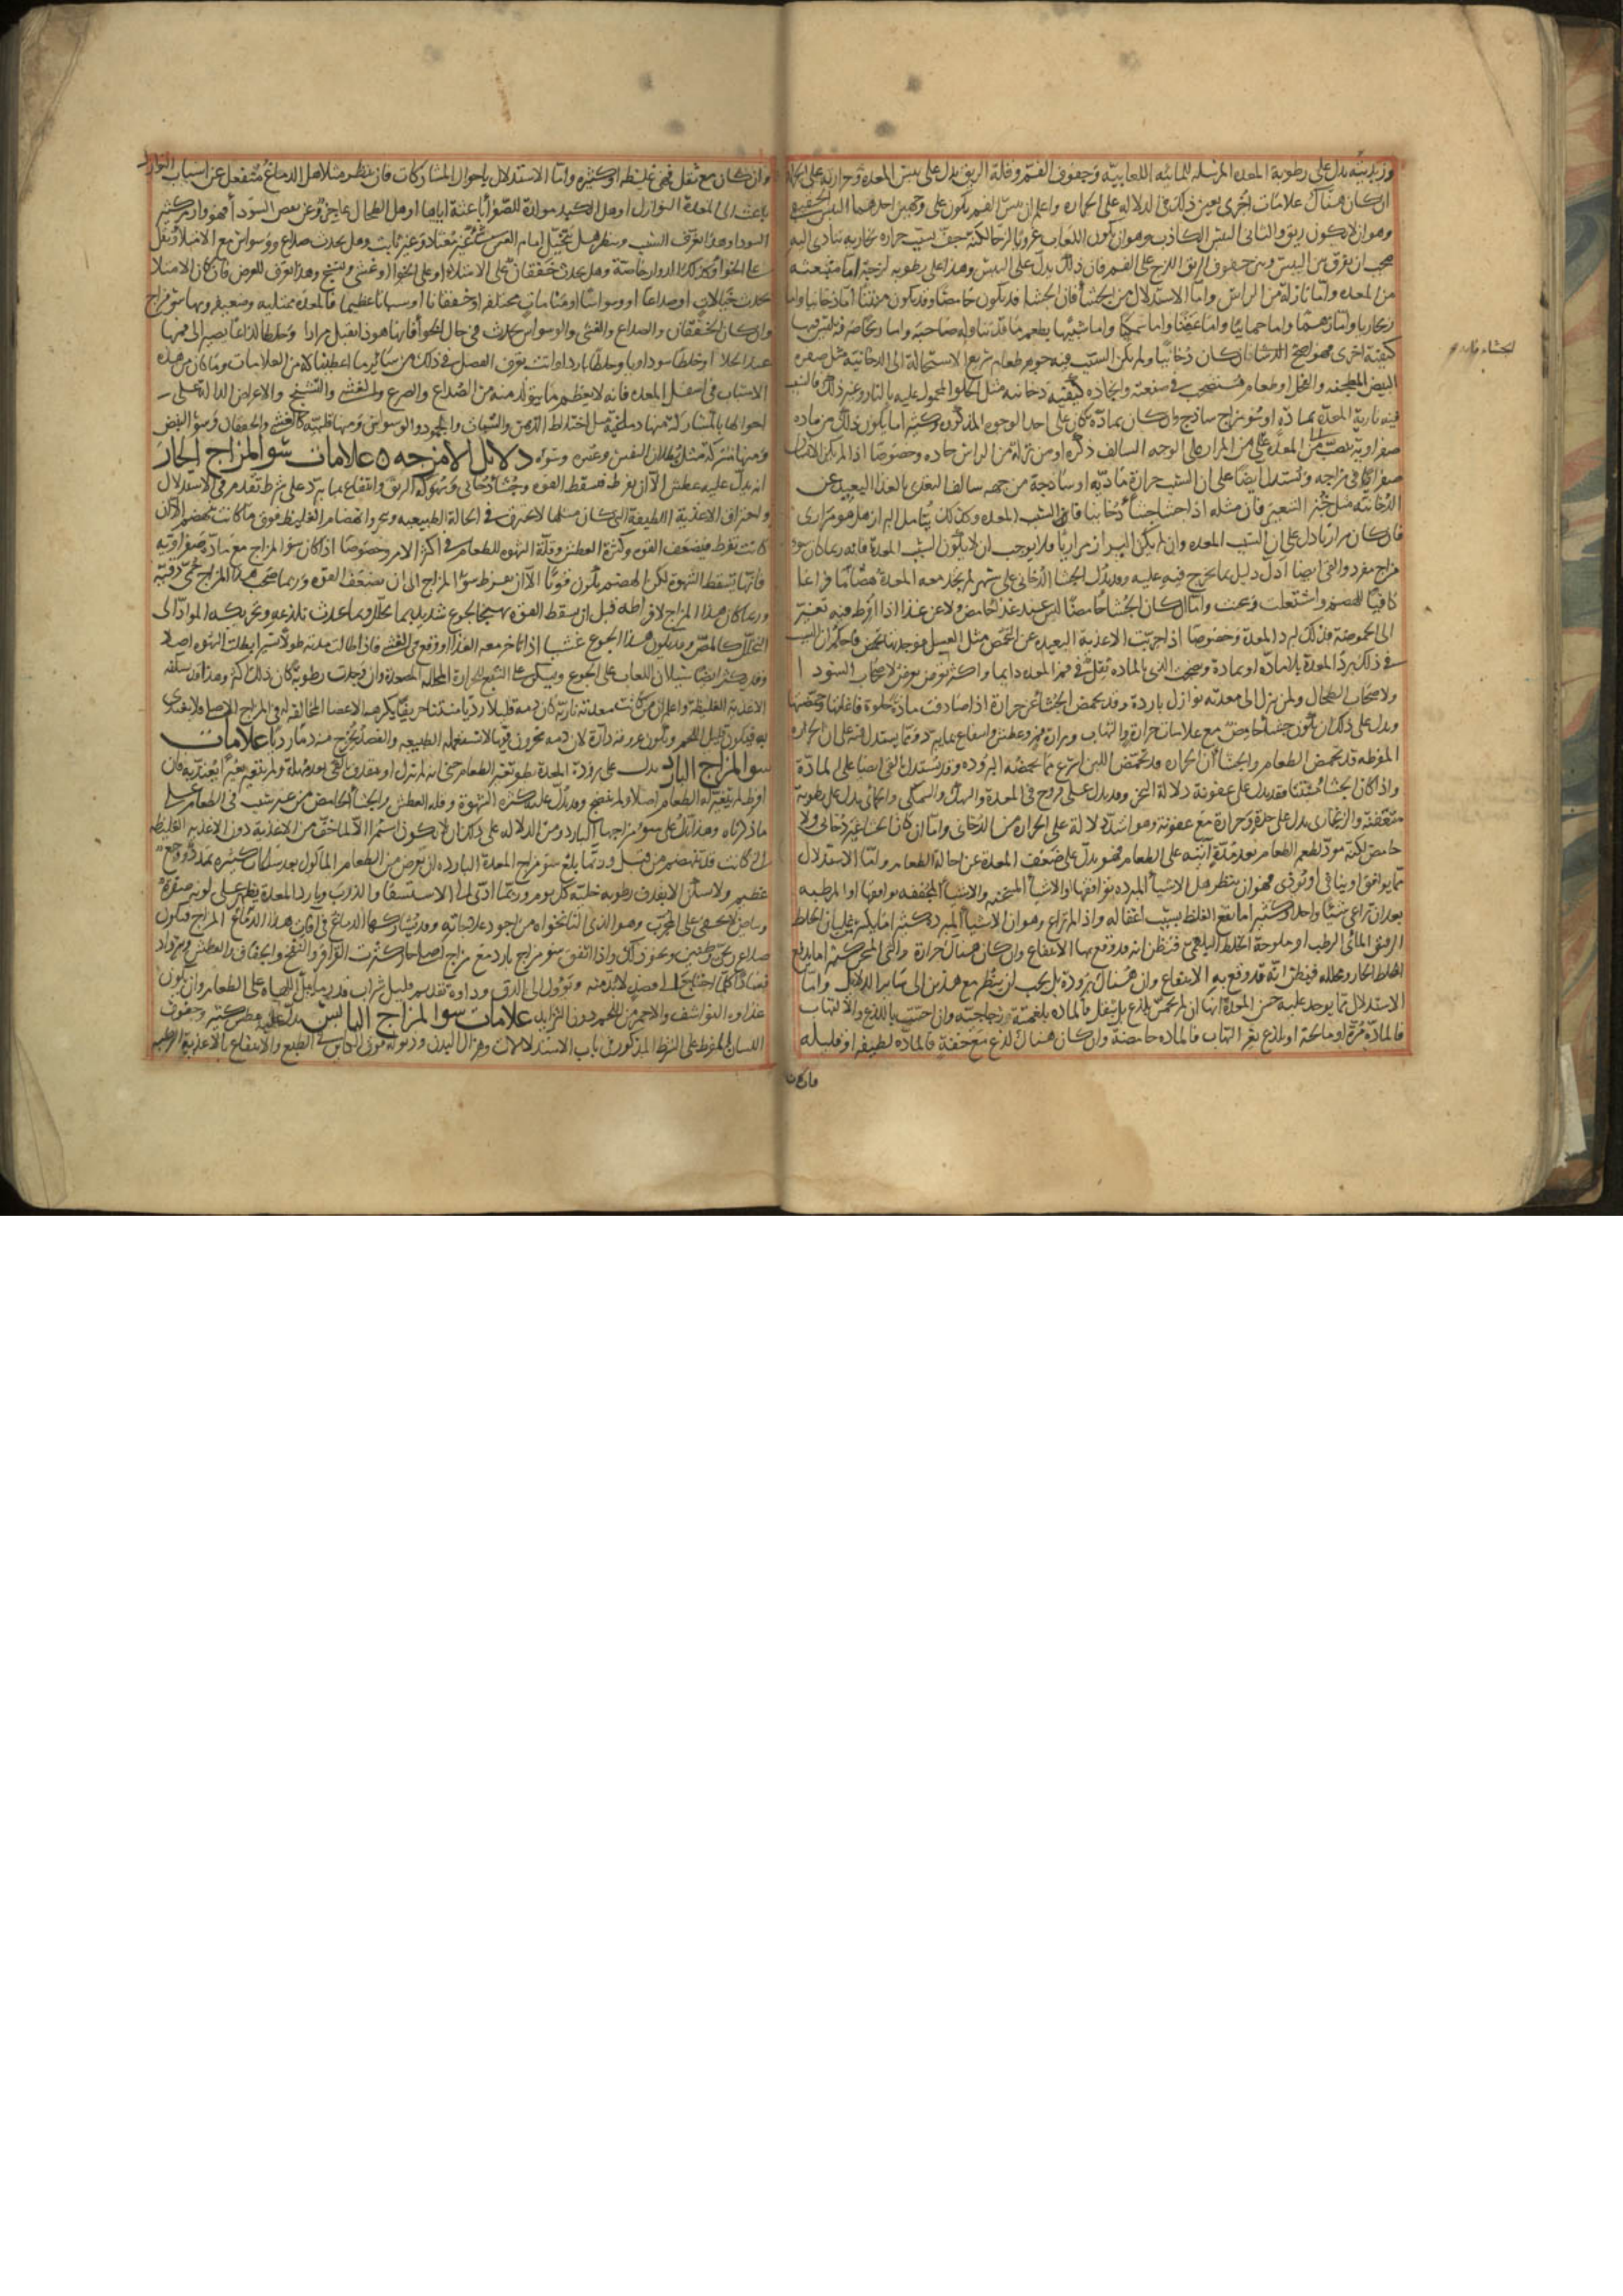 وزبديته يدل على رطوبة المعده المرسله للمائيه اللعابية وجفوف الفم وقلة الريق يدل على يبس المعدة وحرارته على الحرارة
ان كان هناك علامات اخرى تعين ذلك في الدلاله على الحراره واعلم ان يبس الفم يكون على وجهين احدهما اليبس الحقيقي
وهو ان لا يكون ريق والثاني اليبس الكاذب وهو ان يكون اللعاب غرويا لزجا لكنه جف بسبب حراره بخاريه تتادى اليه
فيجب ان يفرق بين اليبس وبين جفوف الريق اللزج على الفم فان ذلك يدل على اليبس وهذا على رطوبه لزجة اما منبعثه
من المعده واما نازلة من الراس واما الاستدلال من الجشأ فان الجشا قد يكون حامضا وقد يكون منتنا اما دخانيا واما
زنجاريا واما زهما واما حمائيا واما عفنا واما سمكيا واما شبيها بطعم ما قد تناوله صاحبه واما ريحا صرفة ليس فيها
كيفية اخرى فهو اصلح الجشا فان كان دخانيا ولم يكن السبب فيه جوهر طعام سريع الاستحالة الى الدخانية مثل صفرة
البيض المطجنه والفجل او طعام مستصحب في صنعته واتخاذه كيفيه دخانيه مثل الحلوا المعمول عليه بالنار وغير ذلك فالسبب
فيه نارية المعدة بمادة او سوء مزاج ساذج وان كان بمادة كان على احد الوجوه المذكورة وكثيرا ما يكون ذلك من ماده
صفراوية تنصب الى المعدة من المرارة على الوجه السالف ذكره او من نزلة من الراس حاده وخصوصا اذا لم يكن الانسان
صفراويا في مزاجه ويستدل ايضا على ان السبب حرارة مادية او ساذجة من جهه سالف التغذى بالغذا البعيد عن
الدخانيه مثل خبز الشعير فان مثله اذا جشا جشأ دخانيا فان السبب المعده وكذلك يتامل البراز هل هو مراري
فان كان مراريا دل على ان السبب المعده وان لم يكن البراز مراريا فلا يوجب ان لا يكون السبب المعدة فانه ربما كان سوء
مزاج مفرد والقي ايضا ادل دليل بما يخرج فيه عليه وقد يدل الجشا الدخاني على سهر لم يجد معه المعدة هضما ما فراغا
كافيا للهضم واشتعلت وسخنت واما ان كان الجشا حامضا ليس عند غذا حامض ولا عن غذا اذا افرط فيه تغير
الى الحموضة فذلك لبرد المعدة وخصوصا اذا جربت الاغذية البعيده عن التحمض مثل العسل فوجدتها تحمض فاحكم ان السبب
في ذلك برد المعدة بلا مادة او بمادة ويصحب الذي بالماده ثقل في فم المعده دايما واكثر من يعرض لاصحاب السودا
ولاصحاب الطحال ولمن ينزل الى معدته نوازل باردة وقد يحمض الجشا عن حرارة اذا صادفت مادة حلوة فاغلتها وحمضتها
ويدل على ذلك ان يكون جشأ حامض مع علامات حرارة والتهاب ومرارة فم وعطش وانتفاع بما يبرد وقد يستدل منه على ان الحراره
المفرطه قد تحمض الطعام والجشأ ان الحراره قد تحمض اللبن اسرع مما تحمضه البروده وقد يستدل بالقي ايضا على المادة
واذا كان الجشأ منتنا فقد يدل على عفونة دلالة البخر وقد يدل على قروح في المعدة والسهك والسمكي والحمائي يدل على رطوبة
متعفنه والزنجاري يدل على حدة وحرارة مع عفونه وهو اشد دلالة على الحراره من الدخاني واما ان كان الجشا غير دخاني ولا
حامض لكنه مود لطعم الطعام بعد مدة اتيه على الطعام فهو يدل على ضعف المعدة عن احالة الطعام واما الاستدلال
مما يوافق او ينافي او يؤذي فهو ان ينظر هل الاشيا المبرده توافقها او الاشيا المسخنه والاشيا المجففه توافقها او المرطبه
بعد ان تراعي شيئا واحدا وكثيرا ما يقع الغلط بسبب اغفاله واذ المراعى وهو ان الاشيا المبرده كثيرا ما يسكن غليان الخلط
الرقيق المائي الرطب او ملوحة الخلط البلغمي فتظن انه قد وقع بها الانتفاع وان كان هناك حرارة والشي المسخن كثيرا ما يدفع
الخلط الحار ويحلله فيظن انه قد وقع به الانتفاع وان هناك برودة بل يجب ان ينظر مع هذين الى ساير الدلايل واما
الاستدلال مما يوجد عليه حس المعدة انها ان لم تحس بلذع بل بثقل فالماده بلغمية زجاجية وان احست باللذع والالتهاب
فالمادة مرة او مالحة او بلذع بغير التهاب فالماده حامضة وان كان هناك لذع مع خفة فالمادة لطيفه او قليله
فان كان
الجشاء
وان كان مع ثقل فهي غليظه او كثيره واما الاستدلال باحوال المشاركات فان ينظر مثلا هل الدماغ منفعل عن اسباب النوازل
باعث الى المعدة النوازل او هل الكبد مولدة للصفرا باعثة اياها او هل الطحال عاجز عن نفض السودا فهو وارم كثير
السودا وهذا يعرف السبب وينظر هل يتخيل امام العين شي غير معتاد وغير ثابت وهل يحدث صداع ووسواس مع الامتلا ويقل
على الخوا وكذلك الدوار خاصة وهل يحدث خفقان على الامتلاء او على الخوا او غشي وتشنج وهذا يعرف للعرض فان كان الامتلا
يحدث خيالات او صداعا او وسواسا او منامات مختلفه او خفقانا او سباتا عظيما فالمعدة ممتليه وضعيفه وبها سو مزاج
وان كان الخفقان والصداع والغشي والوسواس يحدث في حال الخوا فانها هوذا يقبل مرارا وخلطا لذاعا يصير الى فمها
عند الخلا او خلطا سوداويا وخلطا باردا وانت تعرف الفصل في ذلك من ساير ما اعطيناك من العلامات وما كان من هذه
الاسباب في اسفل المعده فانه لا يعظم ما يتولد منه من الصداع والصرع والغشي والتشنج والاعراض الدالة على
احوالها بالمشاركة منها دماغية مثل اختلاط الذهن والسبات والجمود والوسواس ومنها قلبية كالغشي والخفقان وسو النبض
ومنها مشتركة مثل بطلان النفس وعسره وسوء دلايل الامزجه ه علامات سو المزاج الحار
انه يدل عليه عطش الا ان يفرط فتسقط القوه وجشأ دخاني وسهوكة الريق وانتفاع بما يبرد على شرط تقدم في الاستدلال
واحتراق الاغذية اللطيفة التي كان مثلها لا يحترق في الحالة الطبيعيه وسخوا نهضام الغليظ فوق ما كانت تهضم الا ان
كانت تفرط فيضعف القوه وكثرة العطش وقلة الشهوه للطعام في اكثر الامر وخصوصا اذا كان سو المزاج مع مادة صفراويه
فانها تسقط الشهوة لكن الهضم يكون قويا الا ان يفرط سو المزاج الى ان تضعف القوه وربما صحب هذا المزاج حمى دقية
وربما كان هذا المزاج لافراطه قبل ان يسقط القوه مهيجا لجوع شديد بما يحلل وبما يحدث بلذعه وتحريكه المواد الى
التحلل كالمص وقد يكون هذا الجوع غشييا اذا تاخر معه الغذا اوقع في الغشي فاذا طالت مدته طولا يسيرا بطلت الشهوه اصلا
وقد يكثر ايضا سيلان اللعاب على الجوع ويسكن على الشبع للحرارة المحلله المصعدة وان وجدت رطوبة كان ذلك اكثر وهذا قد يتلفه
الاغذيه الغليظة واعلم ان من كانت معدته نارية كان دمه قليلا رديا منتنا حريفا يكرهه الاعضا المخالفه له في المزاج الاصلي فلا يغتذي
به فيكون قليل اللحم ويكون عروقه دارة لان دمه مخزون فيها لا تستعمله الطبيعه والفصد يخرج منه دما رديا علامات
سو المزاج البارد يدل على برودة المعدة بطو تغير الطعام حتى انه لم ينزل او قذف بالقي بعد مدة ولم يتغير تغيرا يعتد به فان
افرط لم يتغير له الطعام اصلا ولم ينضج وقد يدل عليه كثرة الشهوة وقله العطش والجشا الحامض من غير سبب في الطعام على
ما ذكرناه وهذا يدل على سو مزاجها البارد ومن الدلاله على ذلك ان لا يكون استمراا الا لما خف من الاغذية دون الاغذيه الغليظه
التي كانت قد تنهضم من قبل وربما بلغ سو مزاج المعدة البارده ان يعرض من الطعام الماكول بعد ساعات كثيره تمدد ووجع
عظيم ولا يسكن الا بقذف رطوبه خليه كل يوم وربما ادى الى الاستسقا والذرب وبارد المعدة يظهر على لونه صفرة
وبياض لا يخفى على المجرب وهو الذي النانخواه من اجود علاجاته وقد يشاركها الدماغ في افات هذا الدماغ المزاج فيكون
صداع ريحي وطنين ونحو ذلك واذا اتفق سو مزاج بارد مع مزاج اصلي حار كثرت القراقر والنفخ والجفاف والعطش ويزداد
فسادا كلما احتاج الى فصد لا بد منه وتوول الى الدق ودواوه تقديم قليل شراب قدر ما يبل اللهاة على الطعام وان يكون
غذاوه النواشف والاحمر من اللحم دون الثرايد علامات سو المزاج اليابس يدل عليه عطش كثير وجفوف
اللسان المفرط على الشرط المذكور في باب الاستدلالات وهزال البدن وذبوله فوق الكاين في الطبع والانتفاع بالاغذية الرطبه